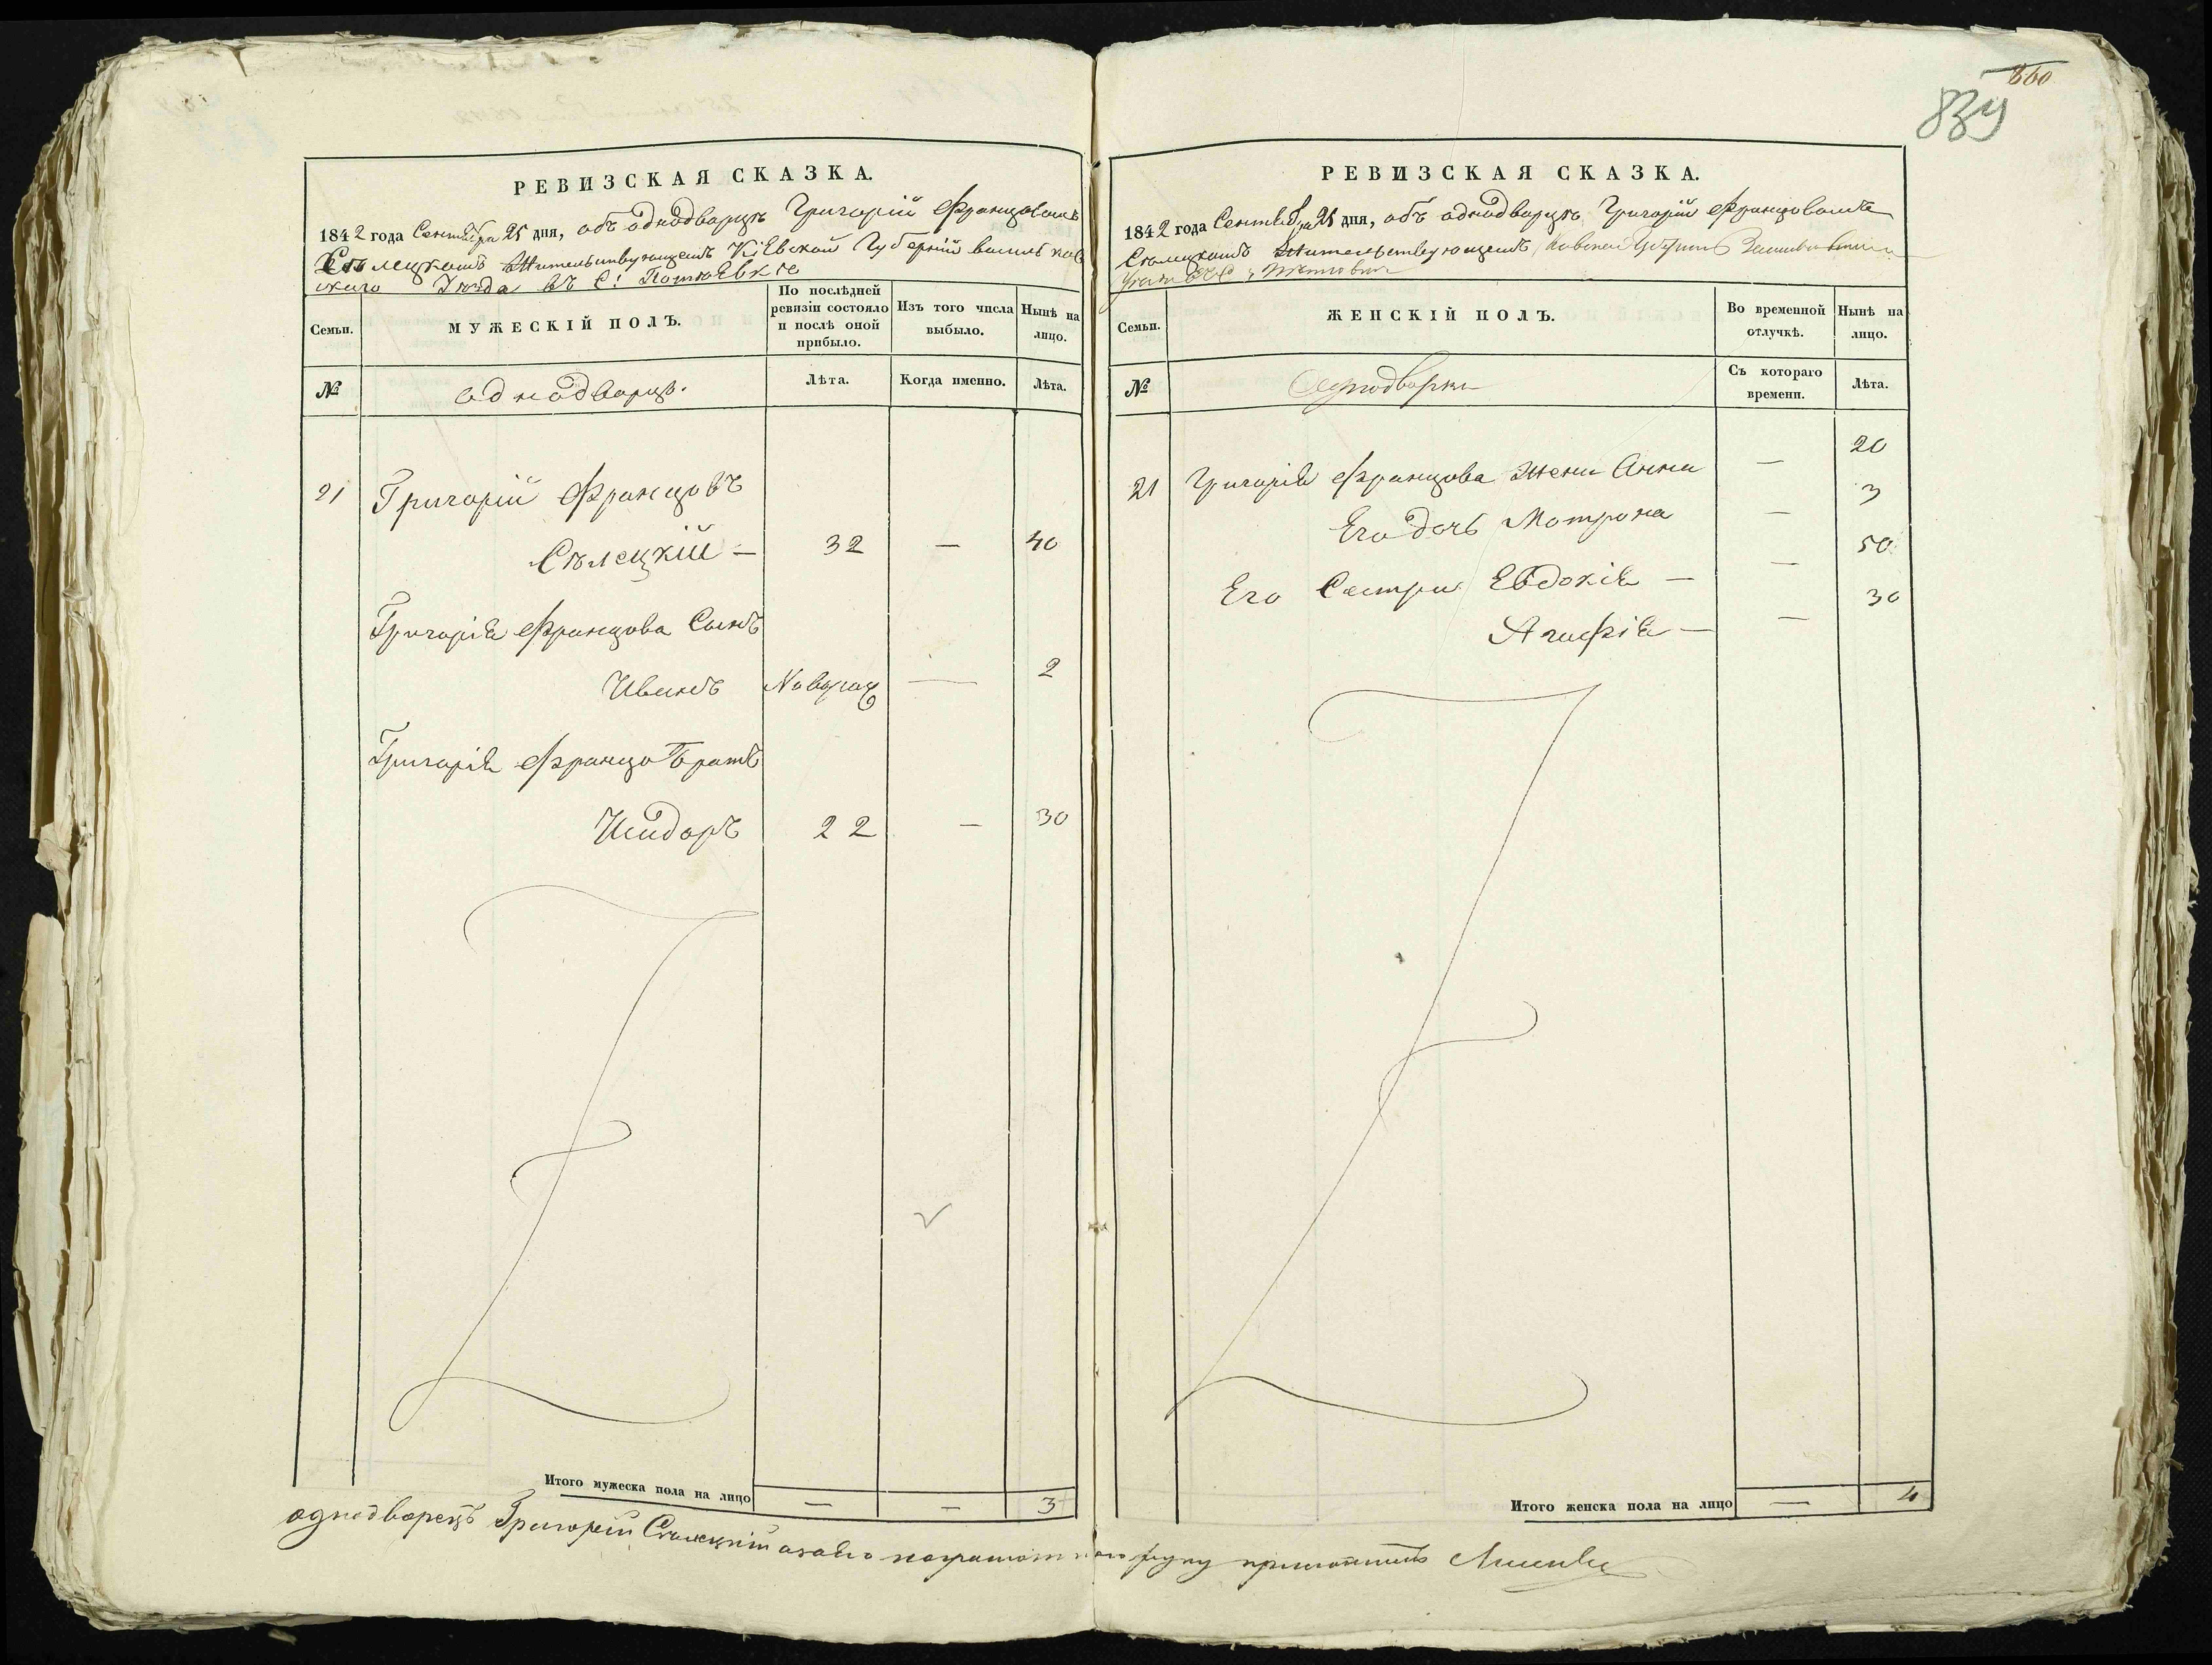 860
839
РЕВИЗСКАЯ СКАЗКА.
1842 года Сентября 25 дня, объ однодворцѣ Григорій Францовомъ
Сѣлецкомъ Жительствующемъ Кіевской Губерній васильков
скаго Уѣзда въ С:
Семьи.
МУЖЕСКІЙ ПОЛЪ.
По послѣдней ревизіи состояло и послѣ оной прибыло.
Изъ того числа выбыло.
Нынѣ на лицо.
№
однодворцы.
Лѣта.
Когда именно.
Лѣта.
21 Григорій Францовъ
Сѣлецкій — 32 — 40
Григорія Францова Сынъ
Иванъ Новорож — 2
Григорія Францо Братъ
Исидоръ 22 — 30
Итого мужеска пола на лицо — — 3
РЕВИЗСКАЯ СКАЗКА.
1842 года Сентября 25 дня, объ однодворцѣ Григорій Францовомъ
Сѣлецкомъ Жительствующемъ
Семьи.
ЖЕНСКІЙ ПОЛЪ.
Во временной отлучкѣ.
Нынѣ на лицо.
№
Однодворки
Съ котораго времени.
Лѣта.
21 Григорія Францова Жена Анна — 20
Его дочь Мотрона — 3
Его Сестры Евдокія — — 50
Агафія — — 30
Итого женска пола на лицо — 4
однодворецъ Григорій Сѣлецкій а за его неграмотного руку приложилъ